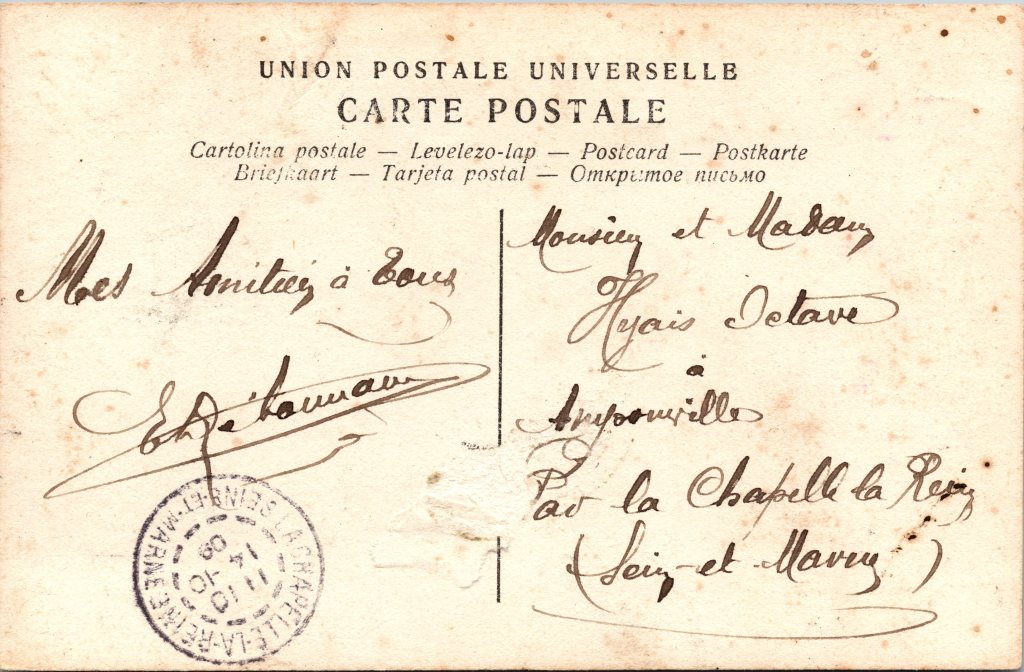 UNION POSTALE UNIVERSELLE
CARTE POSTALE
Cartolina postale — Levelezo-lap — Postcard — Postkarte
Briefkaart — Tarjeta postal — Открытое письмо
Mes Amitiés à Tous
Monsieur et Madame
Hyais Octave
à
Amponville
Par la Chapelle la Reine
(Seine-et-Marne)
LA CHAPELLE-LA-REINE SEINE-ET-MARNE
14
11 10
09